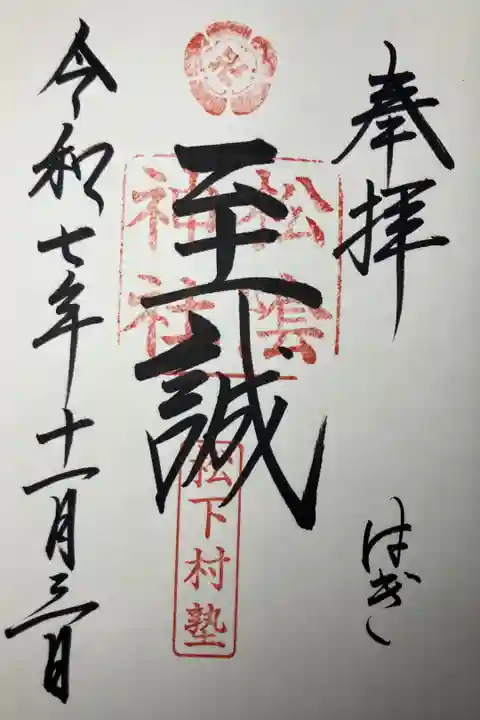 奉拝
はぎし
松陰
神社
至誠
松下村塾
令和七年十一月三日